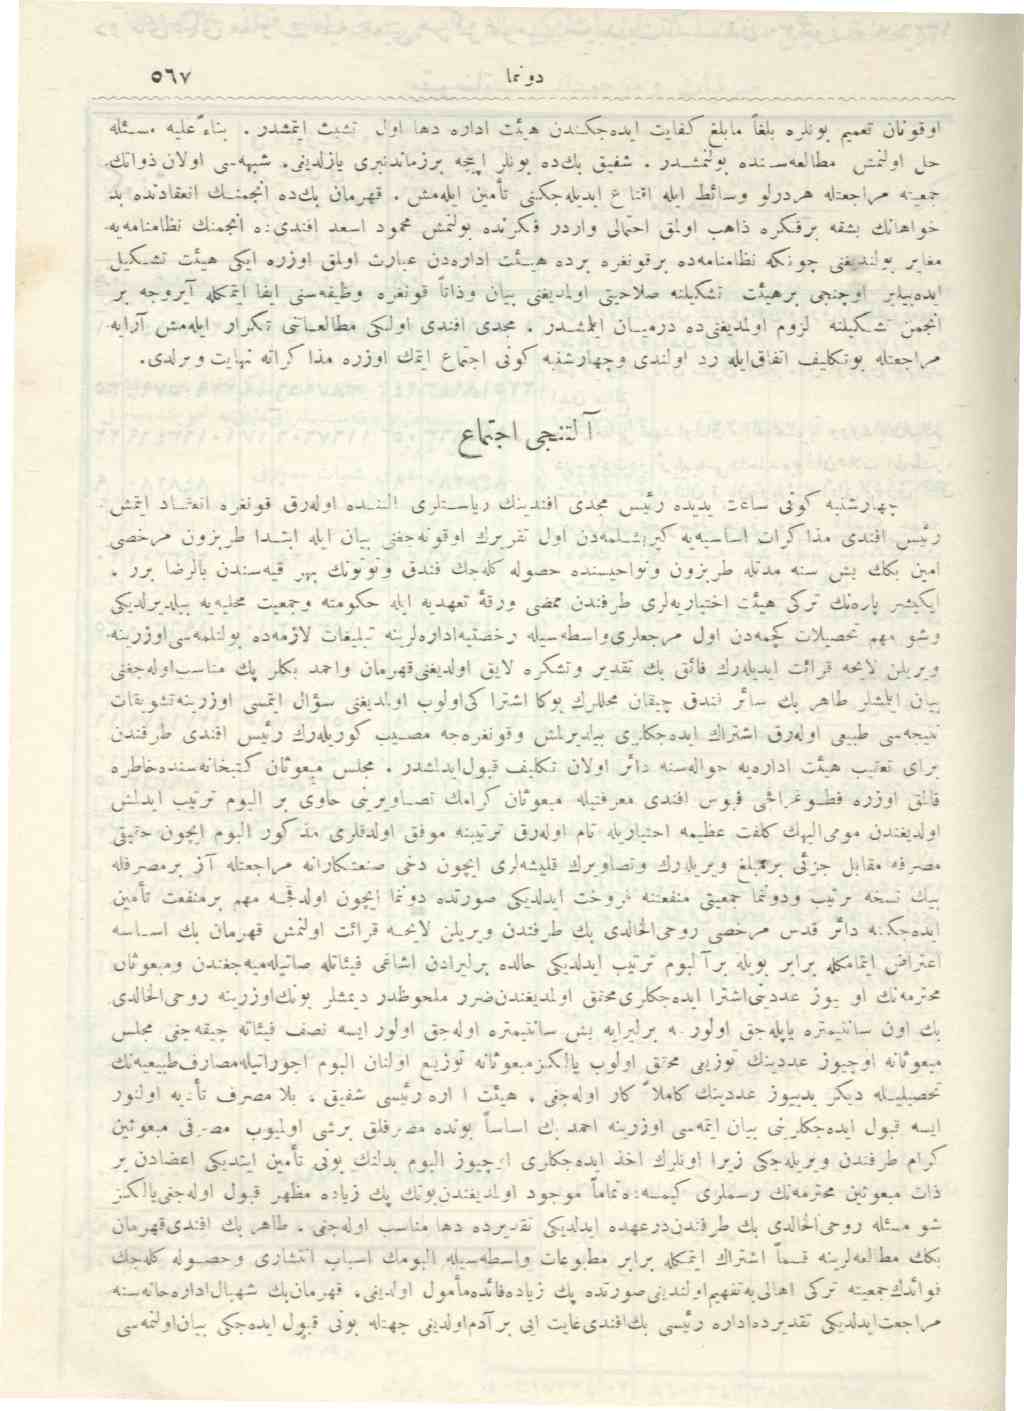 دوننما ٥٦٧
اوقونان تعميم بونلره بلغاً مابلغ كفايت ايده‌جكندن هيئت اداره دها اول تشبث ايتمشدر . بناءً عليه مسئله
حل اولنمش مطالعه‌سنده بولنمشدر . شفيق بك‌ده بونلر ايچه برزماندنبرى يازلدينى، شبهه‌سى اولان ذواتك
جمعيته مراجعتله هردرلو وسائط ايله اقناع ايديله‌جكنى تأمين ايله‌مش . قهرمان بك‌ده انجمنك انعقادنده بد
خواهانك بشقه برفكره ذاهب اولمق احتمالى واردر فكرنده بولنمش محمود اسعد افندى‌ده انجمنك نظامنامه‌يه
مغاير بولنديغنى چونكه نظامنامه‌ده برقونغره برده هيئت اداره‌دن عبارت اولمق اوزره ايكى هيئت تشكيل
ايده‌بيلير اوچنجى برهيئت تشكيلنه صلاحيتى اولمديغنى بيان وذاتاً قونغره وظيفه‌سنى ايفا ايتمكله آيروجه بر
انجمن تشكيلنه لزوم اولمديغنى‌ده درميان ايلمشدر . مجدى افندى اولكى مطالعاتنى تكرار ايله‌مش آرايه
مراجعتله بوتكليف اتفاق‌ايله رد اولندى وچهارشنبه كونى اجتماع ايتمك اوزره مذاكراته نهايت ويرلدى.
آلتنجى اجتماع
چهارشنبه كونى ساعت يديده رئيس مجدى افندينك رياستلرى آلتنده اوله‌رق قونغره انعقاد ايتمش
رئيس افندى مذاكرات اساسيه‌يه كيريشلمه‌دن اول تقريرك اوقونه‌جغنى بيان ايله ابتدا طربزون مرخصى
امين بكك بش سنه مدتله طربزون ونواحيسنده حصوله كله‌جك فندق وتوتونك بهر قيه‌سندن بالرضا برر ،
ايكيشر پاره‌نك تركى هيئت اختياريه‌لرى طرفندن ممضى ورقهٔ تعهديه ايله حكومته وجمعيت محليه‌يه بيلديرلديكى
وشو مهم تحصيلات كچمه‌دن اول مرجعلرى‌واسطه‌سيله رخصتيه‌اداره‌لرينه تبليغات لازمه‌ده بولنلمه‌سى‌اوزرينه
ويريلن لايحه قرائت ايديله‌رك فائق بك تقدير وتشكره لايق اولديغنى‌قهرمان واحمد بكلر پك مناسب‌اوله‌جغنى
بيان ايتمشلر طاهر بك سائر فندق چيقان محللرك بوكا اشتراكى‌اولوب اولمديغنى سؤال ايتمسى اوزرينه‌تشويقات
نتيجه‌سى طبيعى اوله‌رق اشتراك ايده‌جكلرى بيلديرلمش وقونغره‌جه مصيب كوريله‌رك رئيس افندى طرفندن
براى تعقيب هيئت اداره‌يه حواله‌سنه دائر اولان تكليف قبول‌ايدلمشدر . مجلس مبعوثان كتبخانه‌سنده‌خاطره
قالمق اوزره فطوغرافجى فبوس افندى معرفتيله مبعوثان كرامك تصاويرينى حاوى بر البوم ترتيب ايدلمش
اولديغندن مومى‌اليهك كلفت عظيمه اختياريله تام اوله‌رق ترتيبنه موفق اولدقلرى مذكور البوم ايچون حقيقى
مصرفه مقابل جزئى برمبلغ ويريله‌رك وتصاويرك قليشه‌لرى ايچون دخى صنعتكارانه مراجعتله آز برمصرفله
بيك نسخه ترتيب ودوننما جمعيتى منفعتنه فروخت ايدلديكى صورتده دوننما ايچون اولدقجه مهم برمنفعت تأمين
ايده‌جكنه دائر قدس مرخصى روحى‌الخالدى بك طرفندن ويريلن لايحه قرائت اولنمش قهرمان بك اساسه
اعتراض ايتمامكله برابر بويله برآلبوم ترتيب ايدلديكى حالده برليرادن اشاغى فيئاتله صاتيله‌ميه‌جغندن ومبعوثان
محترمه‌نك او يوز عددينى‌اشترا ايده‌جكلرى‌محقق اولمديغندن‌ضرر ملحوظدر ديمشلر بونك‌اوزرينه روحى‌الخالدى
بك اون سانتيمتره ياپيله‌جق اولورسه برليرايه بش سانتيمتره اوله‌جق اولور ايسه نصف فيئاته چيقه‌جغى مجلس
مبعوثانه اوچيوز عددينك توزيعى محقق اولوب يالكزمبعوثانه توزيع اولنان البوم اجوراتيله‌مصارف‌طبيعيه‌نك
تحصيليله ديكر يديوز عددينك كاملاً كار اوله‌جغى ، هيئت اداره رئيسى شفيق ، بلا مصرف تأديه اولنور
ايسه قبول ايده‌جكلرينى بيان ايتمه‌سى اوزرينه احمد بك اساساً بونده مصرفلق برشى اولميوب مصرفى مبعوثين
كرام طرفندن ويريله‌جكى زيرا اونلرك اخذ ايده‌جكلرى اوچيوز البوم بدلنك بونى تأمين ايتديكى اعضادن بر
ذات مبعوثين محترمه‌نك رسملرى كيمسه‌ده‌تماماً موجود اولمديغندن‌بونك پك زياده مظهر قبول اوله‌جغى‌يالكز
شو مسئله روحى‌الخالدى بك طرفندن‌درعهده ايدلديكى تقديرده دها مناسب اوله‌جغى . طاهر بك افندى‌قهرمان
بكك مطالعه‌لرينه قسماً اشتراك ايتمكله برابر مطبوعات واسطه‌سيله البومك اسباب انتشارى وحصوله كله‌جك
فوائدك‌جمعيته تركى اهالى‌يه‌تفهيم‌اولندينى‌صورتده پك زياده‌فائده‌مأمول اولدينى، قهرمان‌بك شهبال‌اداره‌خانه‌سنه
مراجعت‌ايدلديكى تقديرده‌اداره رئيسى بك‌افندى‌غايت ايى برآدم‌اولدينى جهتله بونى قبول ايده‌جكى بيان‌اولنمه‌سى